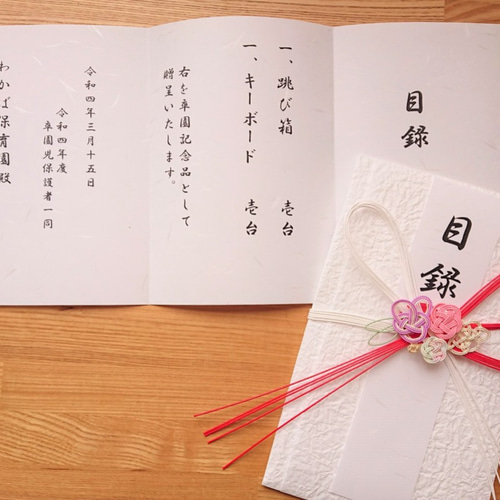 目録
一、跳び箱 壱台
一、キーボード 壱台
右を卒園記念品として
贈呈いたします。
令和四年三月十五日
令和四年度
卒園児保護者一同
わかば保育園殿
目録